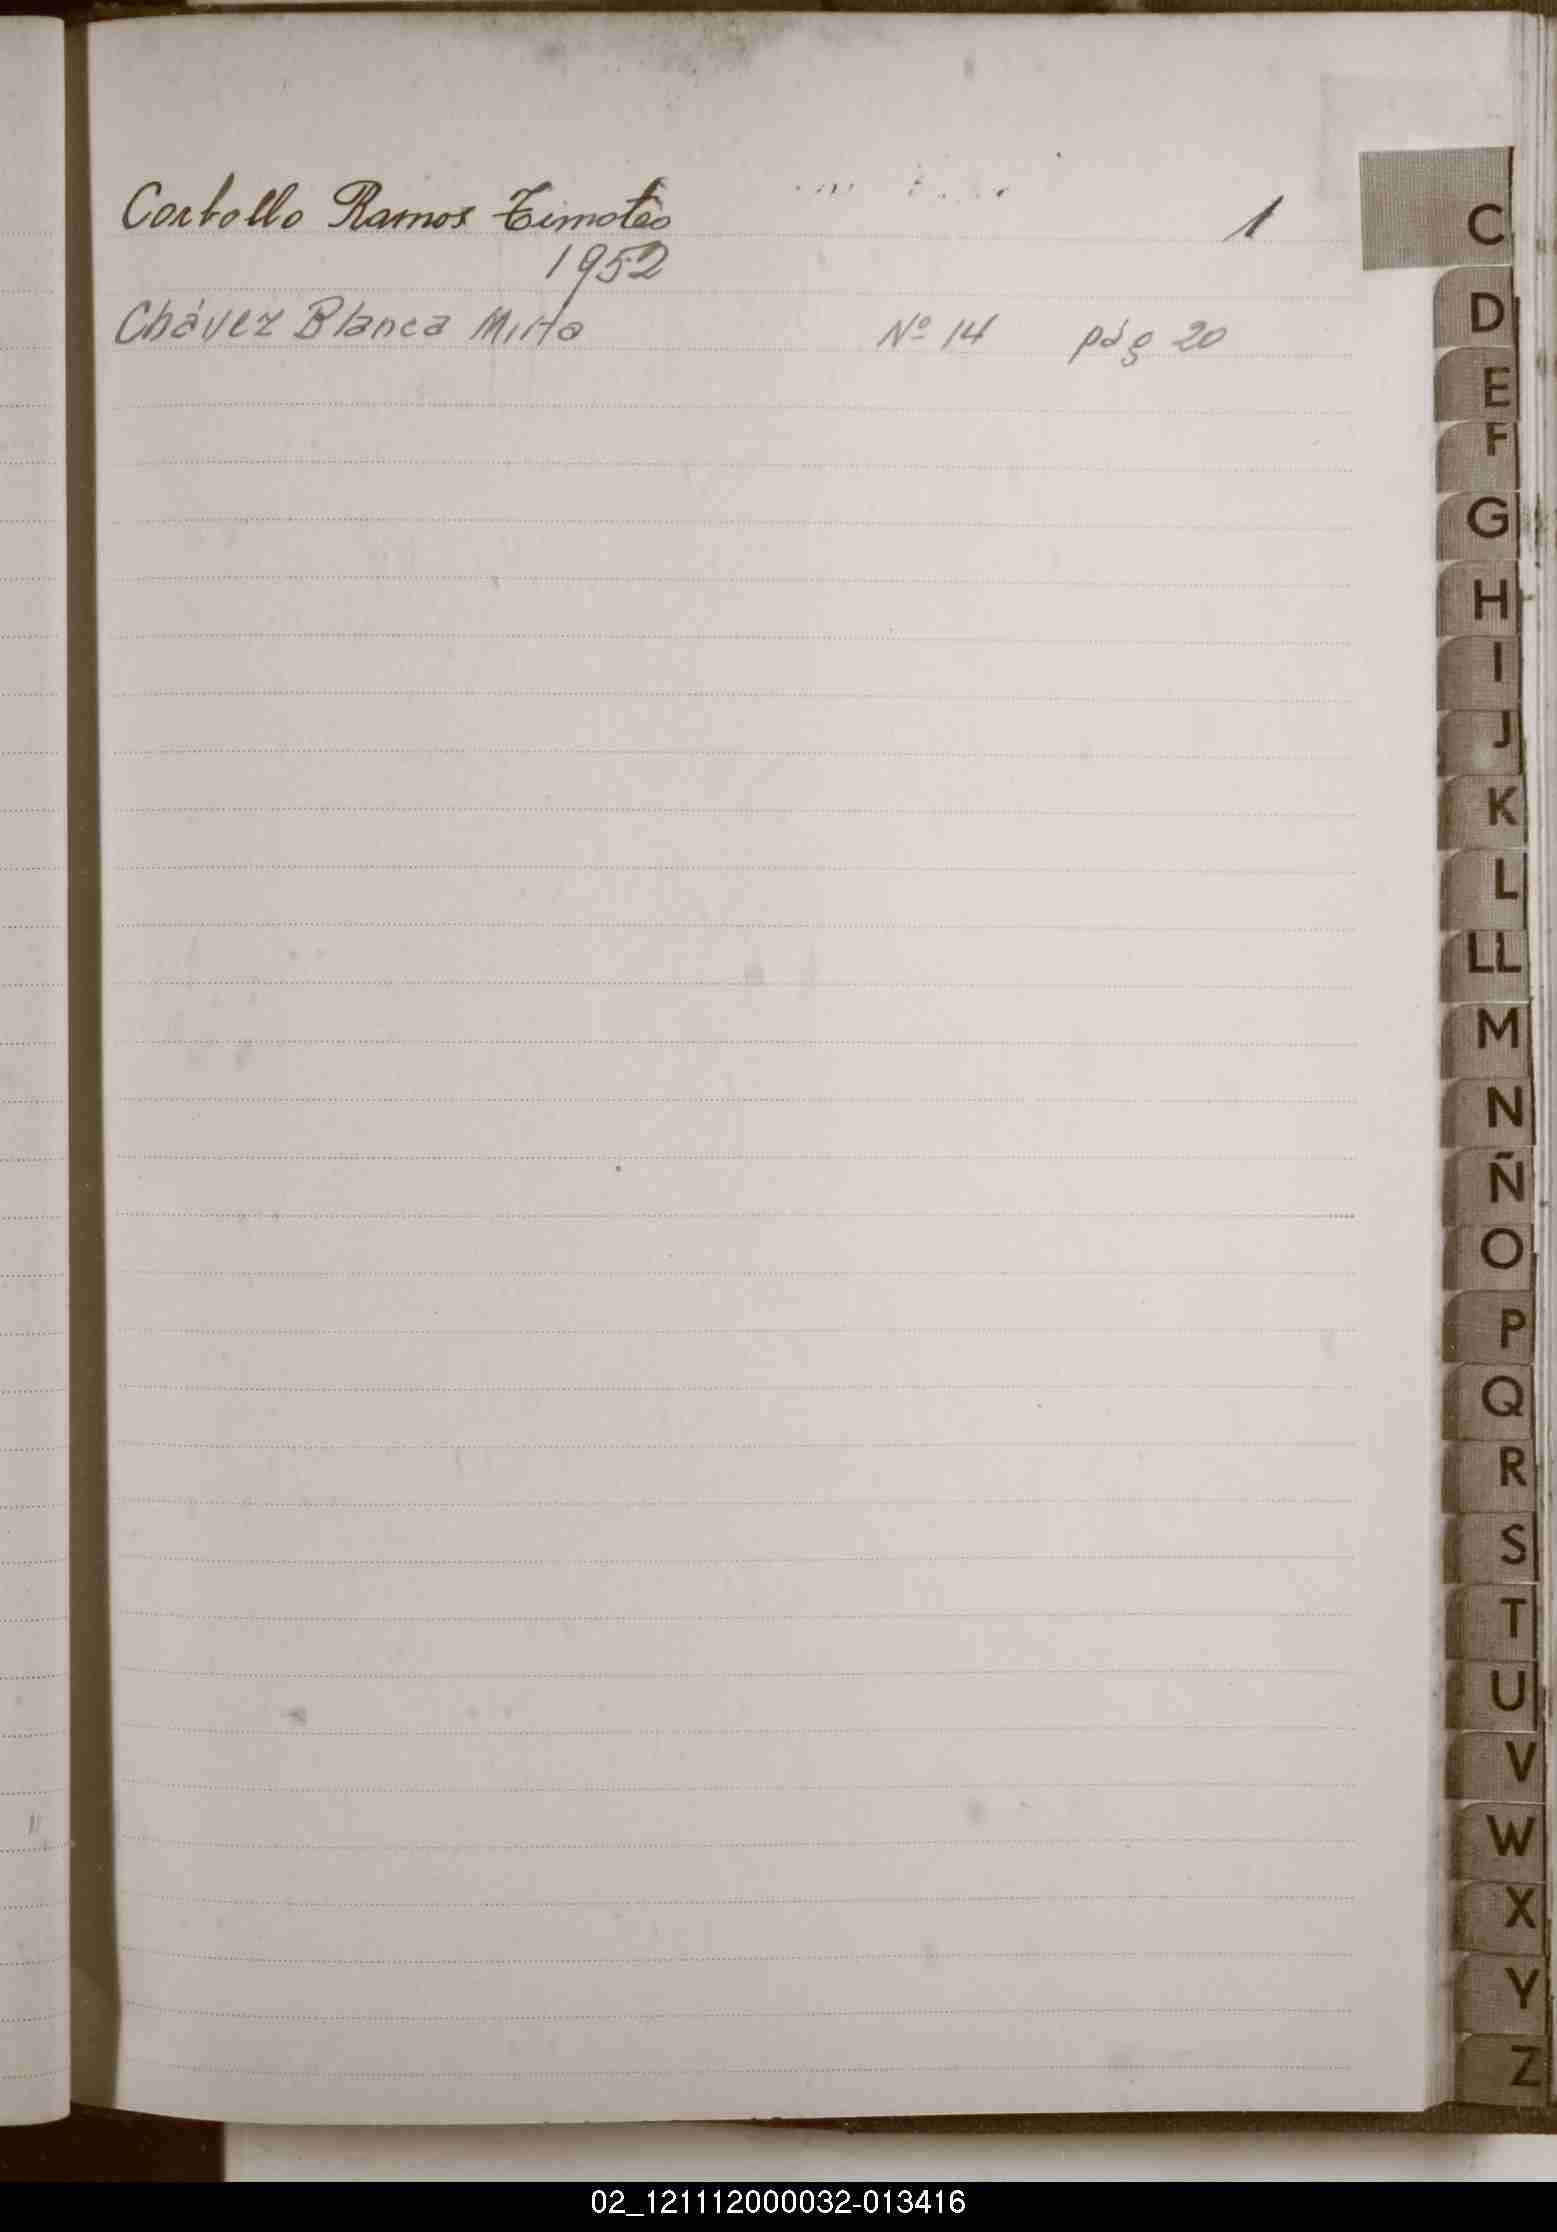 Corbollo Ramos Timoteo 1
1952
Chávez Blanca Mirta Nº 14 pág 20
C
D
E
F
G
H
I
J
K
L
LL
M
N
Ñ
O
P
Q
R
S
T
U
V
W
X
Y
Z
02_121112000032-013416